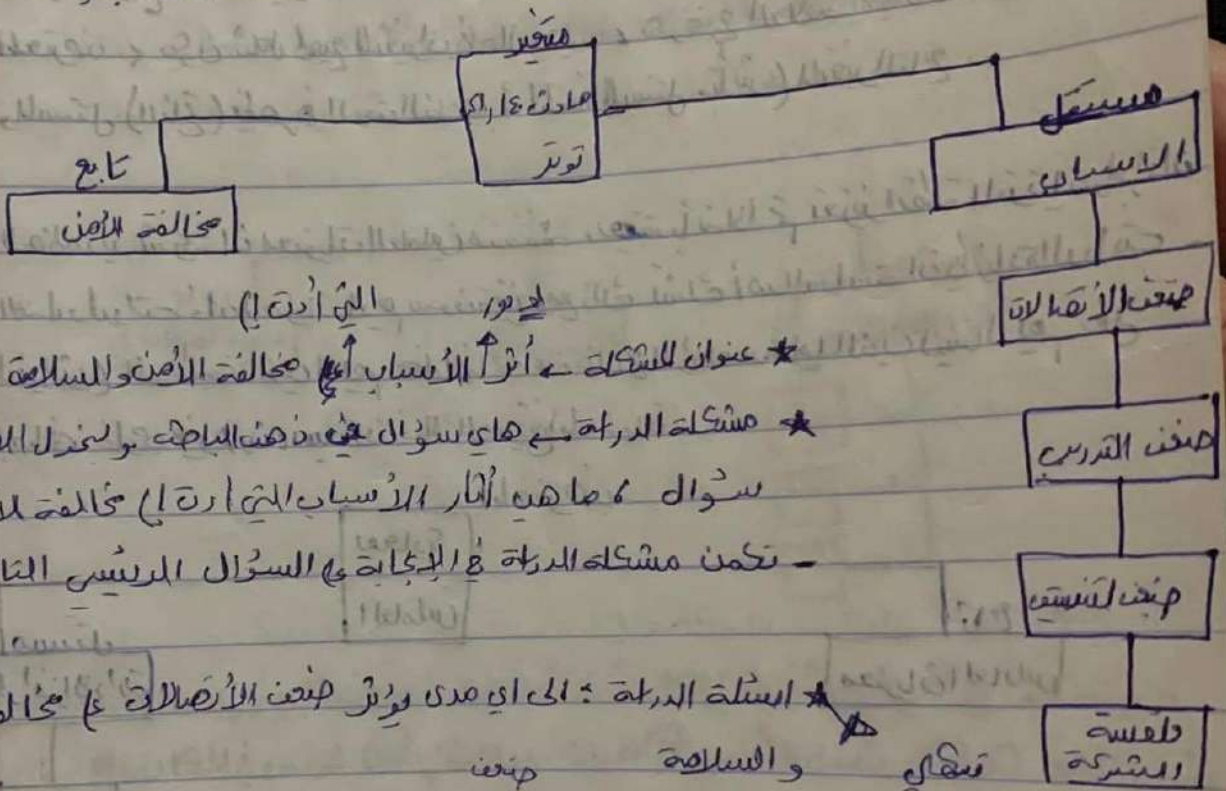 متغير
حادث
توتر
مستقل
الاسباب
تابع
مخالفة الأمن
ضعف الأتصالات
ضعف التدريب
ضعف التنسيق
فلسفة
الشركة
التي أدت إ)
★ عنوان المشكلة ← أثر الأسباب مخالفة الأمن والسلامة
★ مشكلة الدراسة ← هاي سؤال في ذهن الباحث
سؤال ، ما هي أثار الأسباب التي أدت إ) مخالفة
- تكمن مشكلة الدراسة في الإجابة ع السؤال الرئيسي التا
★ اسئلة الدراسة : الى اي مدى يؤثر ضعف الأتصالات ع مخال
تنتهي والسلامة ضعف